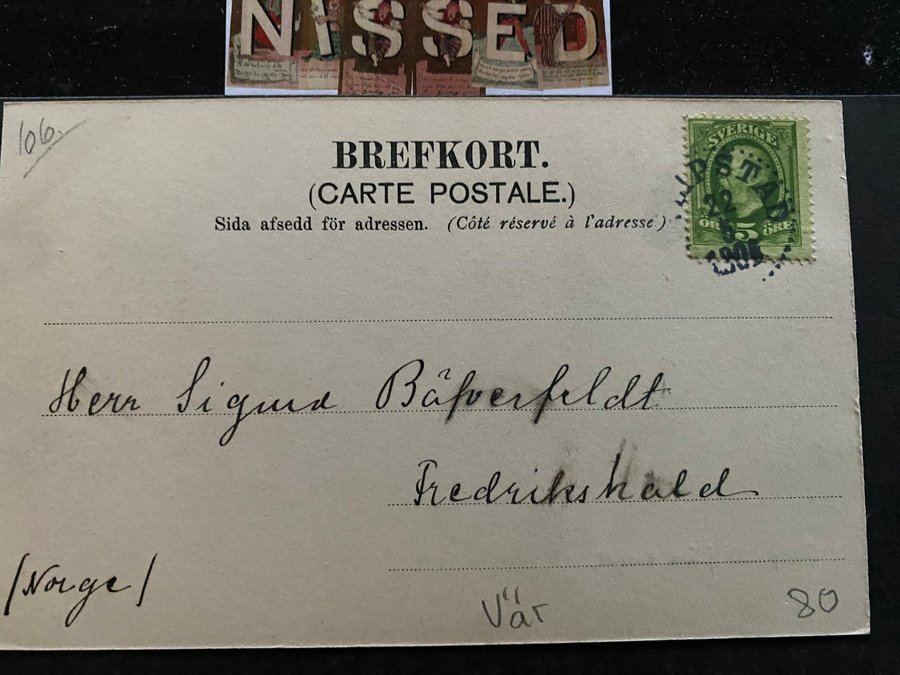 NISSED
106.
BREFKORT.
(CARTE POSTALE.)
Sida afsedd för adressen. (Côté réservé à l'adresse)
SVERIGE
5
ÖRE
Herr Sigurd Bäfverfeldt
Fredrikshald
/Norge/
Vär
80